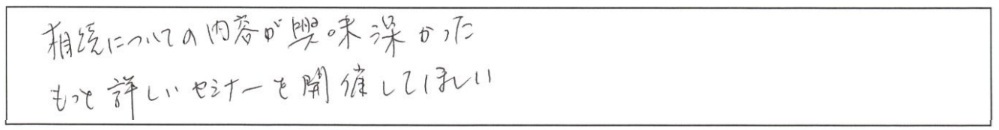 相続についての内容が興味深かった
もっと詳しいセミナーを開催してほしい